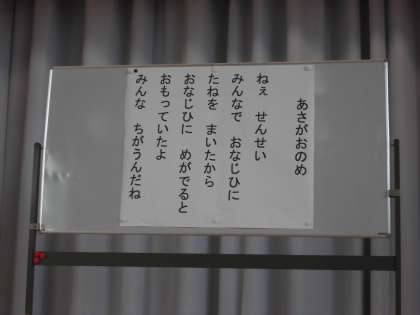 あさがおのめ
ねぇ　せんせい
みんなで　おなじひに
たねを　まいたから
おなじひに　めがでると
おもっていたよ
みんな　ちがうんだね